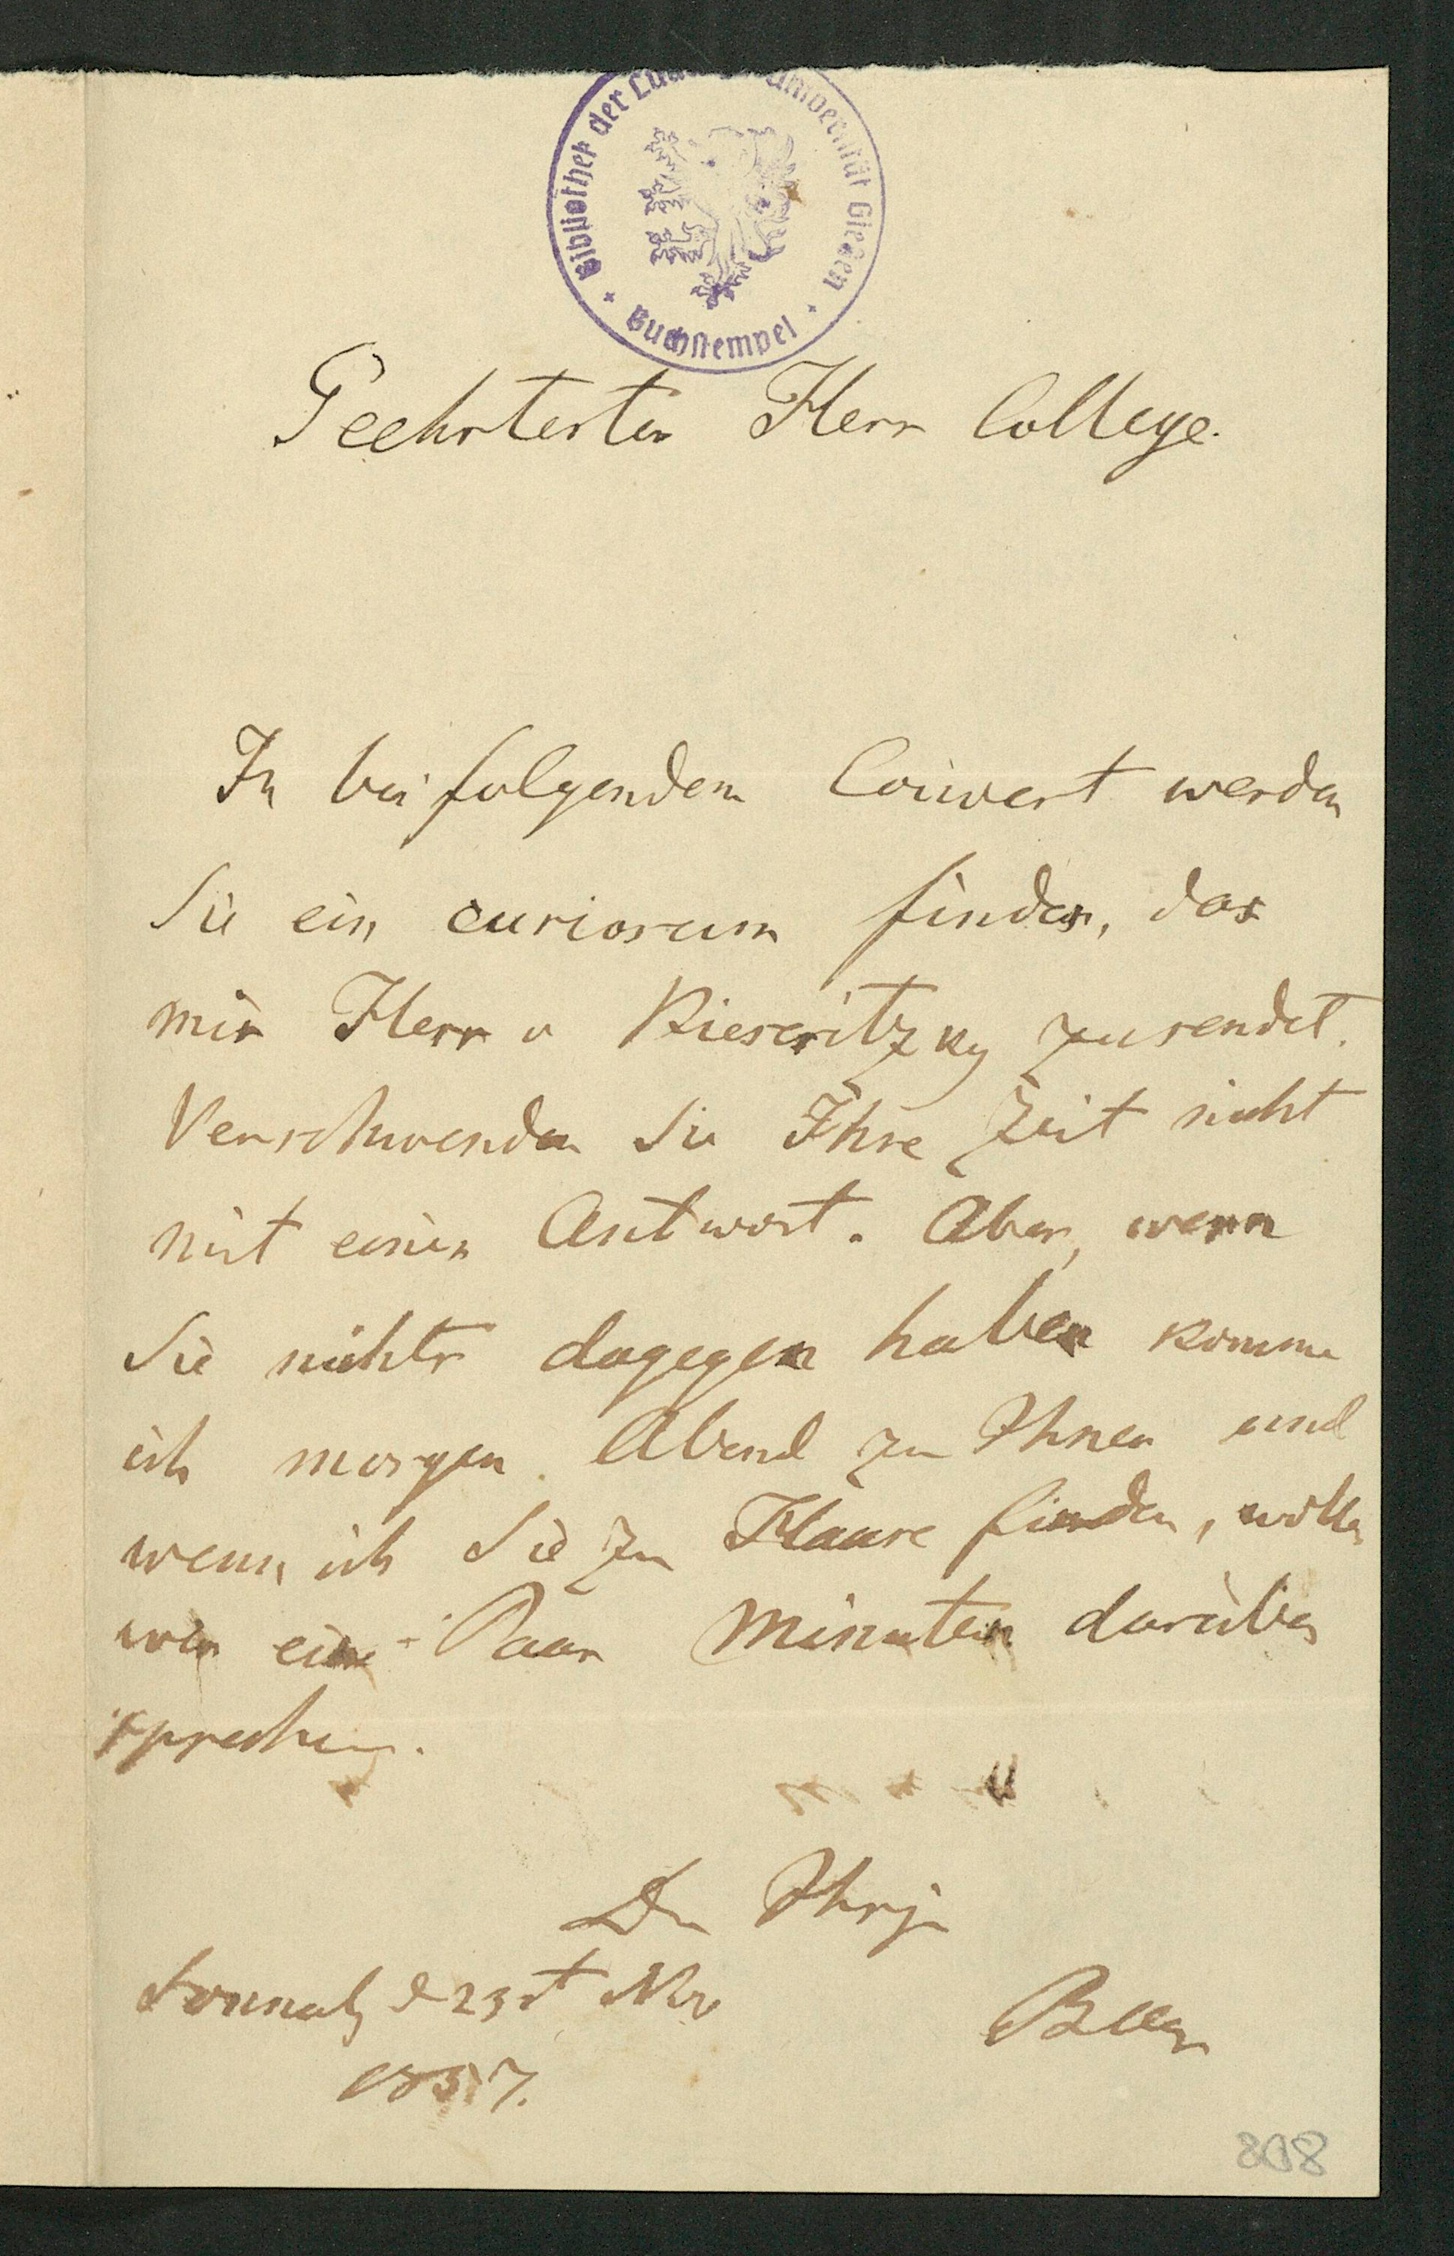 Bibliothek der Ludwigs-Universität Gießen
Buchstempel
Geehrtester Herr College.
In beifolgendem Couvert werden
Sie ein curiosum finden, das
mir Herr v Kieseritzky zusendet.
Verschwenden Sie Ihre Zeit nicht
mit einer Antwort. Aber, wenn
Sie nichts dagegen haben komme
ich morgen Abend zu Ihnen und
wenn ich Sie zu Hause finden, wollen
wir ein Paar Minuten darüber
sprechen.
Der Ihrige
Sonnab d 23st Nov
1857.
Baer
808